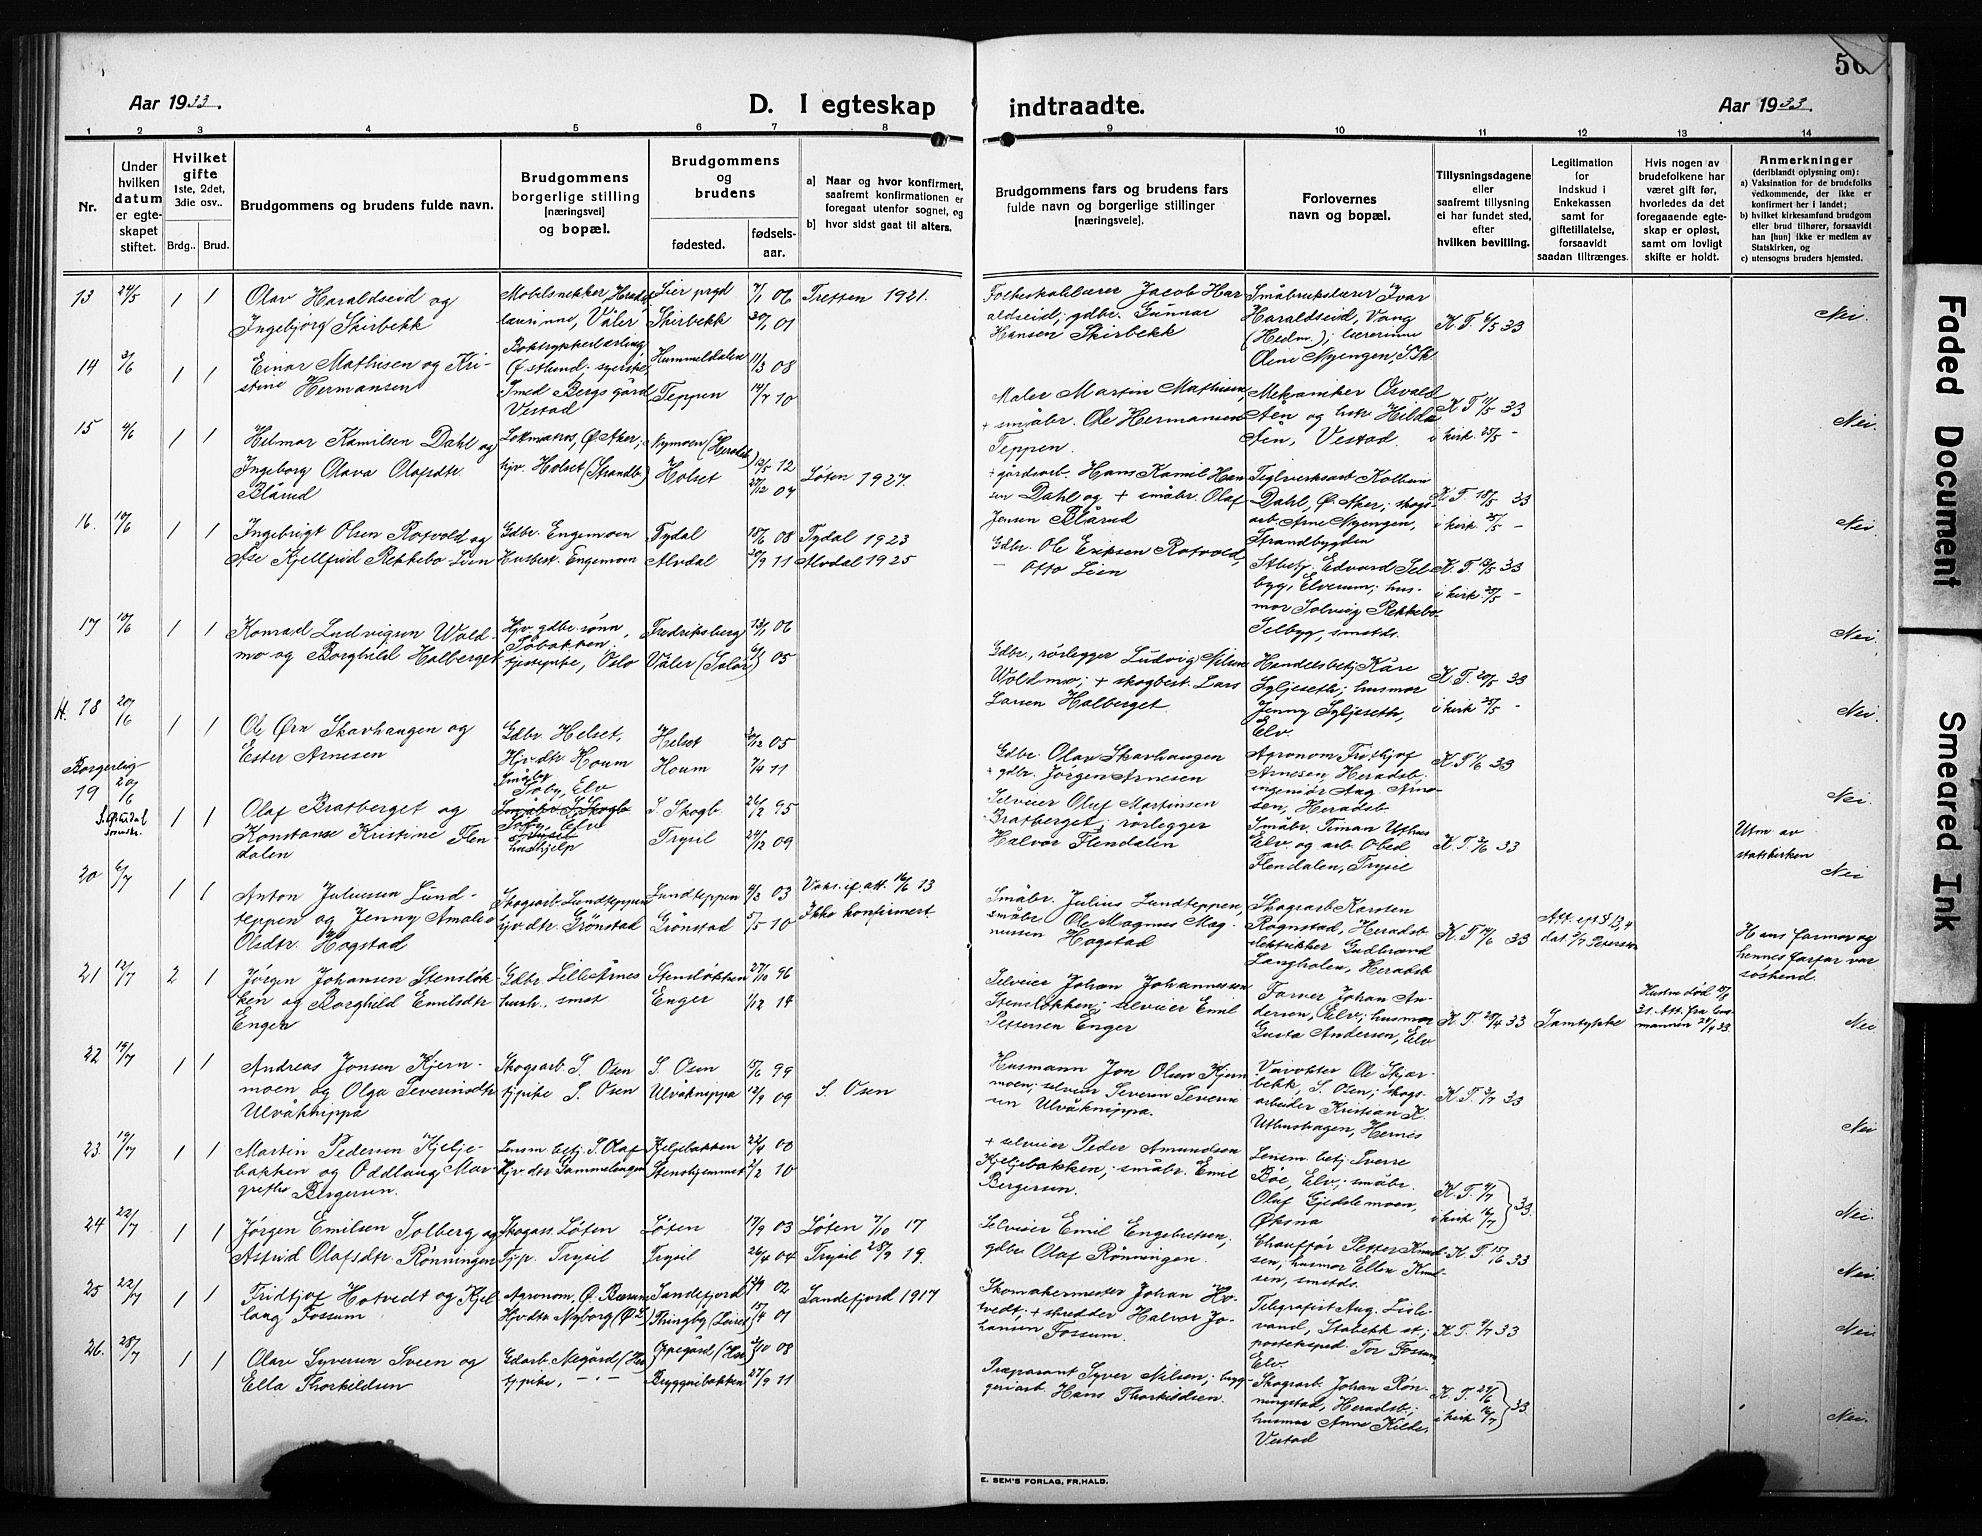 Aar 1933.
D. I egteskap
indtraadte.
Aar 1933.
50
1 2 3 4 5 6 7 8 9 10 11 12 13 14
Nr.
Under hvilken datum er egteskapet stiftet.
Hvilket gifte 1ste, 2det, 3die osv..
Brdg..
Brud.
Brudgommens og brudens fulde navn.
Brudgommens borgerlige stilling [næringsvei] og bopæl.
Brudgommens og brudens
fødested.
fødsels-aar.
a) Naar og hvor konfirmert, saafremt konfirmationen er foregaat utenfor sognet, og
b) hvor sidst gaat til alters.
Brudgommens fars og brudens fars fulde navn og borgerlige stillinger [næringsveie].
Forlovernes navn og bopæl.
Tillysningsdagene eller saafremt tillysning ei har fundet sted, efter hvilken bevilling.
Legitimation for Indskud i Enkekassen samt for giftetillatelse, forsaavidt saadan tiltrænges.
Hvis nogen av brudefolkene har været gift før, hvorledes da det foregaaende egteskap er opløst, samt om lovligt skifte er holdt.
Anmerkninger (deriblandt oplysning om):
a) Vaksination for de brudefolks vedkommende, der ikke er konfirmert her i landet;
b) hvilket kirkesamfund brudgom eller brud tilhører, forsaavidt han [hun] ikke er medlem av Statskirken, og
c) utensogns bruders hjemsted.
13 24/5 1 1 Olav Haraldseid og Ingebjørg Skirbekk
Møbelsnekker, lærerinne, Våler
Lier prgd 7/1 06
Skirbekk 30/1 01
Tretten 1921.
Folkeskolelærer Jacob Haraldseid; gdbr. Gunnar Hansen Skirbekk
Småbrukslærer Ivar Haraldseid, Vang (Hedm.); lærerinne Oline Myengen, S.Sk.
K.T. 6/5 33
Nei.
14 3/6 1 1 Einar Mathisen og Kristine Hermansen
Boktrykkerlærling Østlund; syerske, Smed Bergs gård Vestad
Hummeldalen 11/3 08
Teppen 14/7 10
Maler Martin Mathisen, + småbr. Ole Hermansen Teppen.
Mekaniker Osvald Aaen og frk Hilda Aaen, Vestad.
K.T. 11/5 33
i kirk. 25/5 -
Nei.
15 4/6 1 1 Helmar Kamilsen Dahl og Ingeborg Olava Olafsdtr Blårud
Lokmaros, Ø. Aker; hjv. Holset (Strandb)
Nymoen (Heradsb) 12/5 12
Holset 27/12 04
Løten 1927.
+ gårdsarb. Hans Kamil Hansen Dahl og + småbr. Olaf Jensen Blårud
Teglverksarb Kolbein Dahl, Ø. Aker; skogsarb. Arne Myengen, Strandbygden
K.T. 18/5 33
i kirk 25/5 -
Nei
16. 10/6 1 1 Ingebrigt Olsen Rotvold og Åse Kjellfrid Rekkebo Lien
Gdbr. Engemoen
Husbest. Engemoen
Tydal 18/6 08
Alvdal 20/9 11
Tydal 1923
Alvdal 1925
Gdbr. Ole Eriksen Rotvold, — Otto Lien
Stbetj. Edvard Selbyg, Elverum; husmor Solveig Rekkebo Selbyg, smstds.
K.T. 18/5 33
i kirk. 25/5 -
Nei.
17 10/6 1 1 Konrad Ludvigsen Woldmo og Borghild Halberget
Hjv. gdbr. sønn, Søbakken, tjenpike, Oslo
Fredriksberg 13/1 06
Våler (Solør) 6/2 05
Gdbr., rørlegger Ludvig Nilsen Woldmo; + skogbest. Lars Larsen Halberget
Handelsbetj Kåre Syljeseth; husmor Jenny Syljeseth, Elv.
K.T. 20/5 33
i kirk. 25/5 -
Nei.
H. 18 20/6 1 1 Ole Ørn Skavhaugen og Ester Arnesen
Gdbr. Helset, Hjv. dtr Houm
Helset 20/12 05
Houm 7/4 11
Gdbr. Olav Skavhaugen + gdbr. Jörgen Arnesen
Agronom Fridtjof Arnesen, Heradsb. ingeniør Aug. Arnesen, Heradsb.
K.T. 1/6 33
Nei.
Borgerlig 19 20/6
S. Østerdal
1 1 Olaf Bratberget og Konstanse Kristine Flendalen
Søby, Elv
hushjelp
S. Skogb 26/2 95
Trysil 24/12 09
Selveier Oluf Martinsen Bratberget; rørlegger Halvor Flendalen
Småbr. Timan Uthus Elv. og arb. Obed Flendalen, Trysil
K.T. 3/6 33
Utm av statskirken
Nei
20 6/7 1 1 Anton Juliussen Lundteppen og Jenny Amalie Olsdtr. Hogstad
Skogsarb. Lundteppen
hjv. dtr. Grönstad
Lundteppen 4/3 03
Grönstad 5/5 10
Vaks. if. att. 16/6 13
Ikke konfirmert
Småbr. Julius Lundteppen, småbr. Ole Magnus Magnussen Hogstad
Skogsarb Karsten Rognstad, Heradsb. elektriker Gudbrand Langholen, Heradsb
K.T. 14/6 33
Att. ept § 13,4 dat. 3/7
Hans farmor og hennes farfar var søskend.
21 12/7 2 1 Jörgen Johansen Stenslökken og Borghild Emilsdtr Enger
Gdbr Lille Årnes
hush. smst
Stenslökken 27/10 96
Enger 1/12 14
Selveier Johan Johannessen Stenslökken; selveier Emil Pettersen Enger
Garver Johan Andersen, Elv; husmor Gusta Andersen, Elv
K.T. 28/4 33
Samtykke
Hustru död 31. Att. fra
Nei
22 14/7 1 1 Andreas Jonsen Kjernmoen og Olga Severinsdtr Ulvåknippa
Skogsarb. S. Osen
tjpike S. Osen
S. Osen 15/6 99
Ulvåknippa 12/9 09
S. Osen
Husmann Jon Olsen Kjernmoen; selveier Severin Severinsen Ulvåknippa.
Vavokter Ole Skjærbekk, S. Osen; skogsarbeider Kristian K. Uthushagen, Hernes
K.T. 3/7 33
Nei
23. 19/7 1 1 Martin Pedersen Kjeljebakken og Oddlaug Margrethe Bergersen.
Lensm betj. S. Olaf
Hjv. dtr Gammelengen
Kjeljebakken 22/4 00
Stenshjemmet 5/2 10
+ selveier Peder Amundsen Kjeljebakken; småbr. Emil Bergersen.
Lensm. betj. Sverre Böe, Elv; småbr. Olaf Gjeddemoen, Öksna
K.T. 4/7
i kirk 16/7 } 33.
Nei.
24 22/7 1 1 Jörgen Emilsen Solberg og Astrid Olafsdtr. Rönningen
Skogass. Löten
Tjp. Trysil
Löten 17/9 03
Trysil 26/4 04
Löten 7/10 17
Trysil 28/9 19.
Selveier Emil Engebretsen; gdbr. Olaf Rönningen.
Chauffør Petter Knudsen, husmor Ellen Knudsen, smstds.
K.T. 15/6 33
Nei
25 22/7 1 1 Fridtjof Hotvedt og Kjellaug Fossum
Agronom, Ø. Bærum
Hjv. dtr Nyborg (Ø.E.)
Sandefjord 02
Thingby (Leiret) 15/4 01
Sandefjord 1917
Skomakermester Johan Hotvedt; + skredder Halvor Johansen Fossum.
Telegrafist Aug. Lislevand, Stabekk st.; postekspd. Tor Fossum, Elv.
K.T. 7/7 33
Nei.
26. 28/7 1 1 Olav Syversen Sveen og Ella Thorkildsen
Gdarb. Negård (Her
tjpike, — " —
Oppegård (Her 3/10 08
Bryggeribakken 27/9 11
Præparant Syver Nilsen; bryggeriarb. Hans Thorkildsen.
Skogsarb. Johan Rönningstad, Heradsb.; husmor Anne Kilde, Vestad
K.T. 29/6
i kirk 16/7 } 33.
Nei.
E. SEM'S FORLAG, FR.HALD.
Faded Document
Smeared Ink